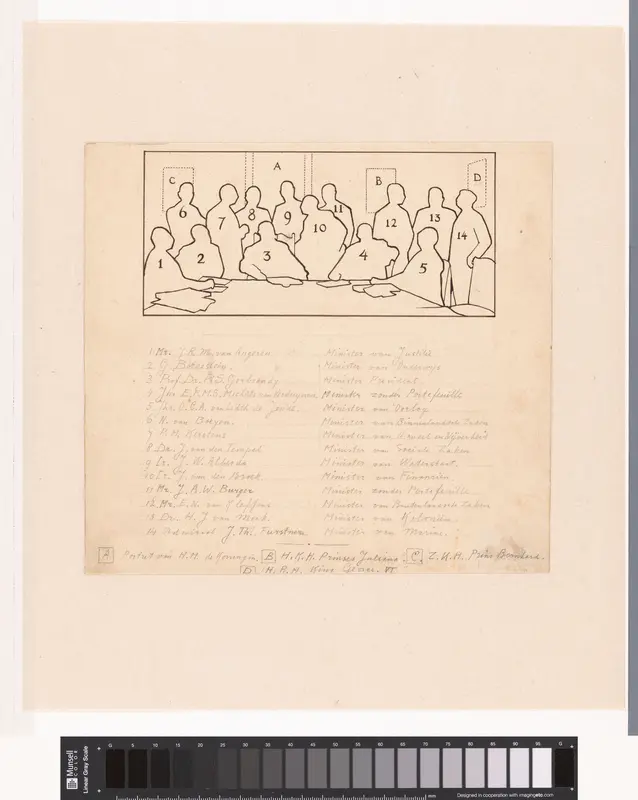 C A B D
6 7 8 9 11 10 12 13 14
1 2 3 4 5
1 Mr. J.R.M. van Angeren Minister van Justitie
2 G. Bolkestein. Minister van Onderwijs
3 Prof. Dr. P.S. Gerbrandy Minister President
4 Jhr. E.F.M.J. Michiels van Verduynen Minister zonder Portefeuille
5 Jhr. O.C.A. van Lidth de Jeude. Minister van Oorlog
6 H. van Boeyen. Minister van Binnenlandsche Zaken
7 P.A. Kerstens Minister van en Nijverheid
8 Dr. J. van den Tempel Minister van Sociale Zaken
9 Ir. J.W. Albarda Minister van Waterstaat.
10 Ir. J. van den Broek Minister van Financiën.
11 Mr. J.A.W. Burger Minister zonder Portefeuille.
12 Mr. E.N. van Kleffens Minister van Buitenlandsche Zaken
13 Dr. H.J. van Mook. Minister van Koloniën.
14 J.Th. Furstner. Minister van Marine.
A Portret van H.M. de Koningin. B H.K.H. Prinses Juliana. C Z.K.H. Prins Bernhard.
D
Munsell COLOR
Linear Gray Scale
G 5 10 15 20 25 30 35 40 45 50 55 60 65 70 75 80 85 90 95 G
mm Designed in cooperation with imagingetc.com